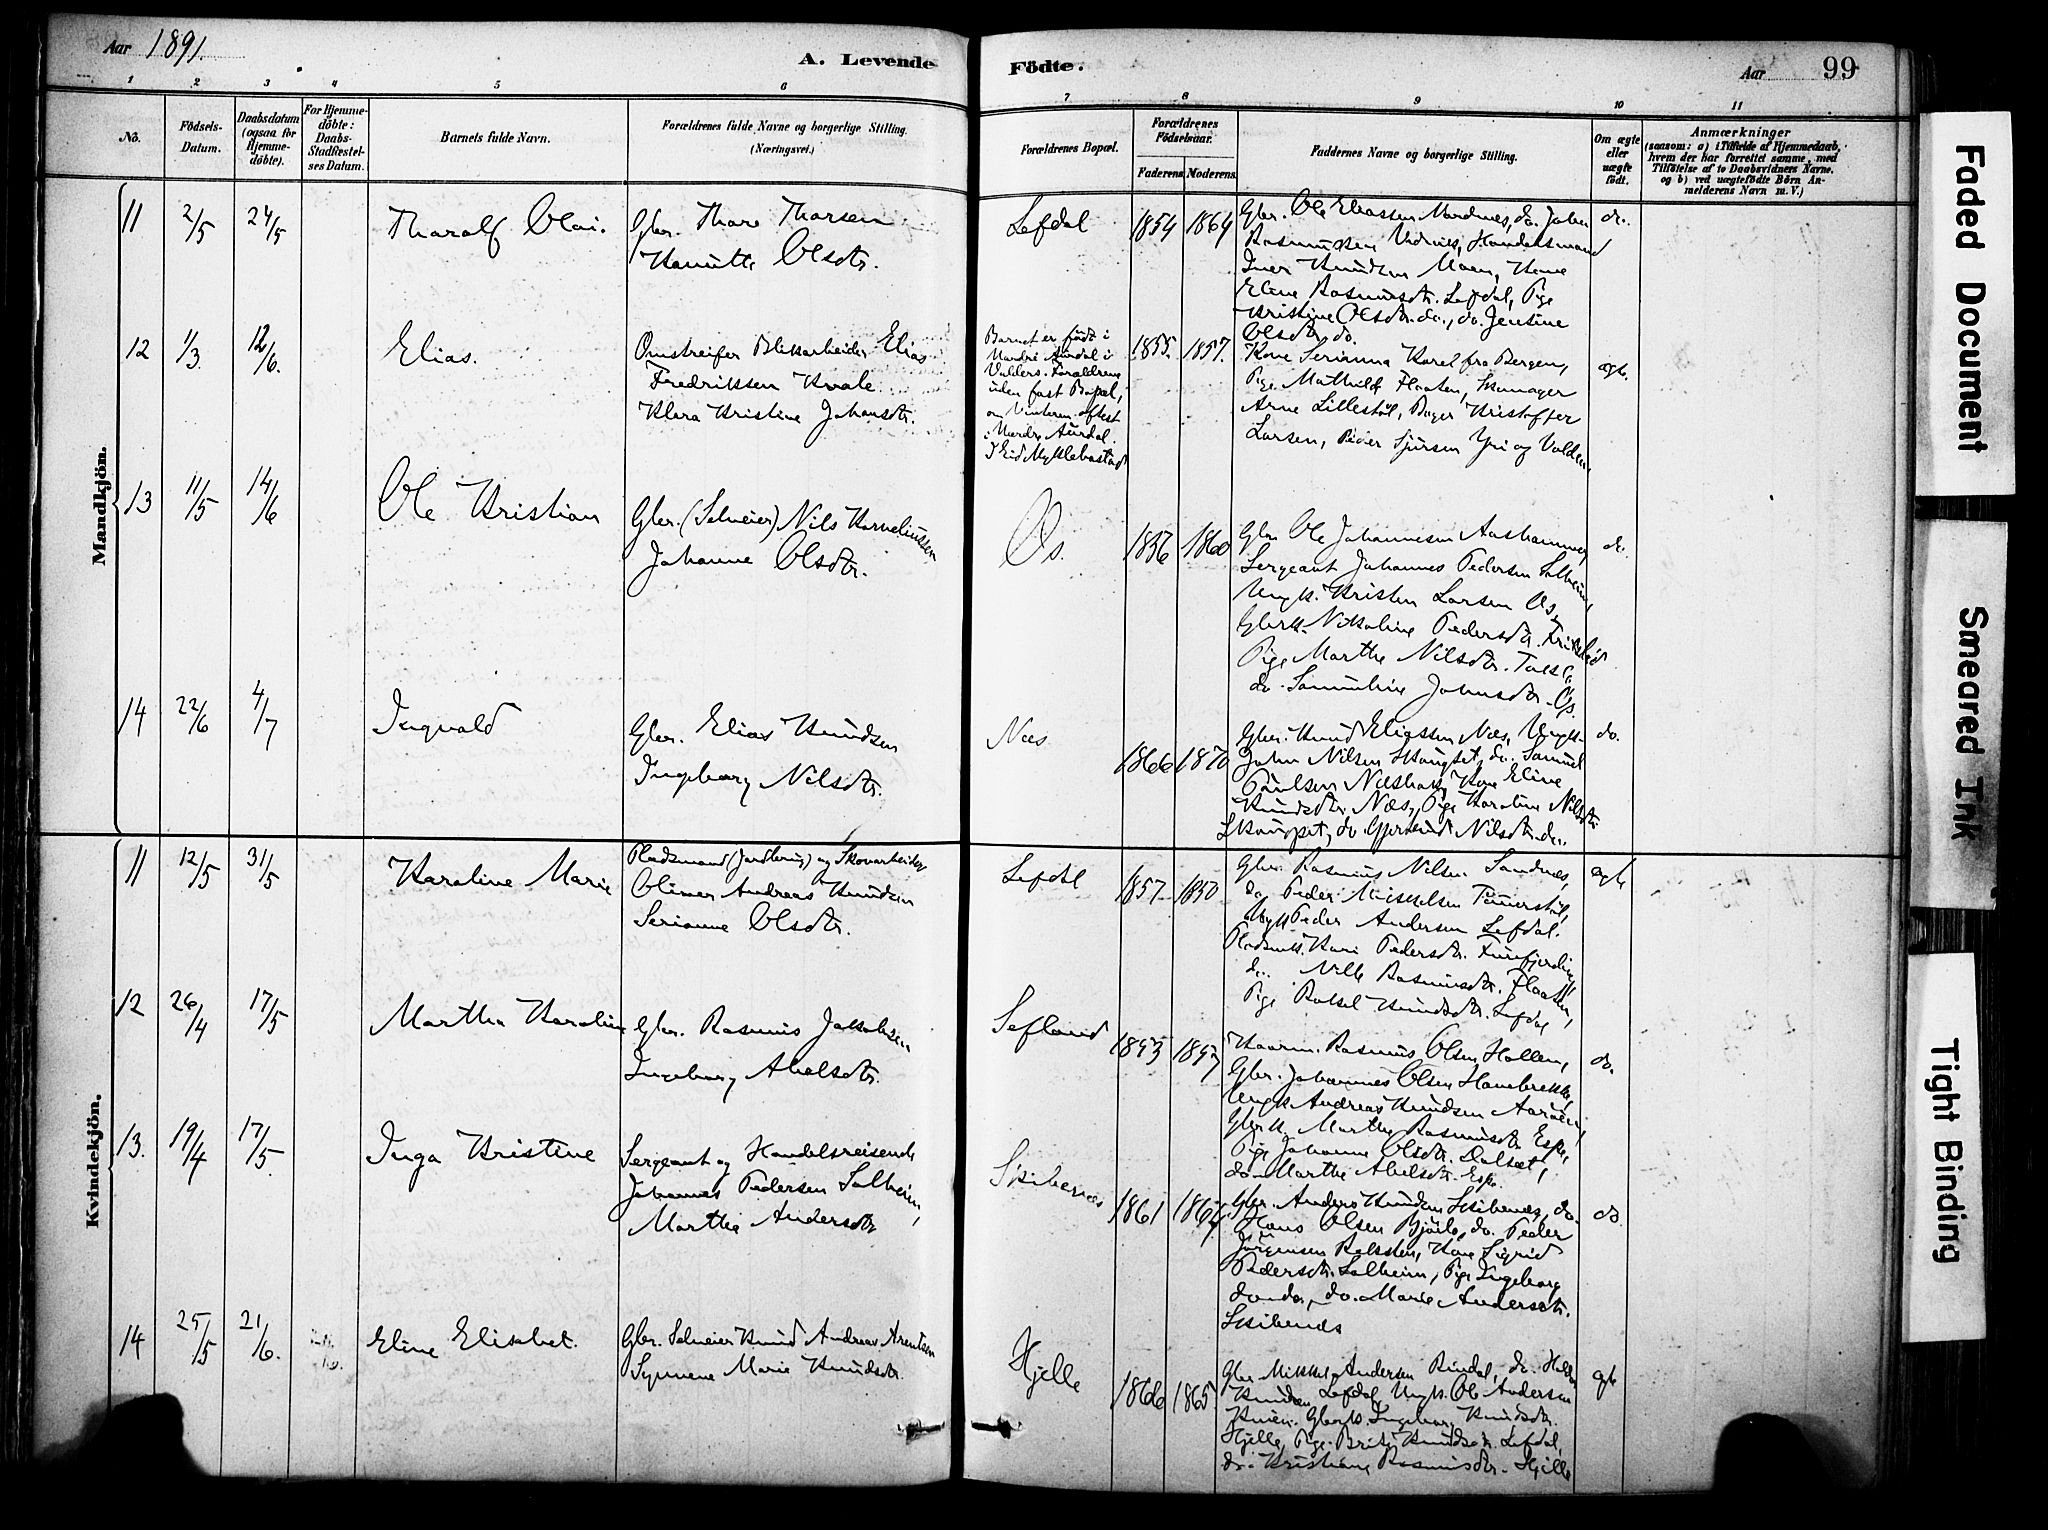 Aar 1891.
A. Levende Födte.
Aar 99
1 2 3 4 5 6 7 8 9 10 11
No.
Födsels-Datum.
Daabsdatum (ogsaa for Hjemme-döbte).
For Hjemme-döbte: Daabs-Stadfæstelses Datum.
Barnets fulde Navn.
Forældrenes fulde Navne og borgerlige Stilling. (Næringsvei.)
Forældrenes Bopæl.
Forældrenes Födselsaar.
Faderens. Moderens.
Faddernes Navne og borgerlige Stilling.
Om ægte eller uægte födt.
Anmærkninger
(saasom: a) i Tilfælde af Hjemmedaab, hvem der har forrettet samme, med Tilföielse af to Daabsvidners Navne, og b) ved uægtefödte Börn Anmelderens Navn m. V.)
Mandkjön.
11 2/5 24/5 Tharalf Olai. Gbr. Thore Thorsen
Hanutte Olsdtr.
Lefdal 1854 1864
Gbr. Ole Eliassen Nordnæs, do. John
Rasmussen Handelsmand
Iver Knudsen Moen, Kone
Eline Rasmusdtr. Lefdal, Pige
Kristine Olsdtr. do., do. Jensine
Olsdtr. do.
do.
12 1/3. 12/6. Elias. Omstreifer Blikarbeider Elias
Fredriksen Kvale
Klara Kristine Johansdtr.
Barnet er født i
Nordre Aurdal i
Valders. Forældrene
uden fast Bopæl,
om Vinteren oftest
i Nordre Aurdal.
I Eid Myklebostad
1855. 1857.
Kone Serianna Karel fra Bergen,
Pige Mathilde Flaaten, Skomager
Arne Lillestöl, Bager Kristoffer
Larsen, Peder Sjursen Yri og
ægte.
13 11/5 14/6 Ole Kristian Gbr. (Selveier) Nils Korneliussen
Johanne Olsdtr.
Os. 1856 1860
Gbr. Ole Johannesen Aashammer,
Sergeant Johannes Pedersen Solheim,
Ungk. Kristen Larsen Os,
Gbrk. Nikoline Pedersdtr.
Pige Marthe Nilsdtr.
do. Samuline Johnsdtr. Os.
do.
14 22/6 4/7 Ingvald Gbr. Elias Knudsen
Ingeborg Nilsdtr.
Næs 1866 1870
Gbr. Knud Eliassen Næs, Ungk.
John Nilsen do. Samuel
Paulsen Kone Eline
Knudsdtr. Næs, Pige Karoline Nilsdtr.
do. Gjertrud Nilsdtr. do.
do.
Kvindekjön.
11 12/5 31/5 Karoline Marie Pladsmand og Skovarbeider
Oliver Andreas Knudsen
Serianne Olsdtr.
Lefdal 1857 1850
Gbr. Rasmus Nilsen Sandnes,
do Peder Mikkelsen
Ungk. Peder Andersen Lefdal.
Kari Pedersdtr.
do. Nille Rasmusdtr. Flaaten,
Pige Rakel Knudsdtr. Lefdal
ægte
12 26/4 17/5 Martha Karoline Gbr. Rasmus Jakobsen
Ingeborg Abelsdtr.
Sefland 1853 1857
Kaarm. Rasmus Olsen Hallem,
Gbr. Johannes Olsen
Ungk. Andreas Knudsen
Gbrk. Marthe Rasmusdtr. Espe,
Pige Johanne Olsdtr. Dalsæt,
do. Marthe Abelsdtr. Espe.
do.
13. 19/4 17/5. Inga Kristine Sergeant og Handelsreisende
Johannes Pedersen Solheim,
Marthe Andersdtr
Skibenæs 1861
Gbr. Anders Knudsen Skibenæs, do.
Hans Olsen do. Peder
Jörgensen Kone Sigrid
Pedersdtr. Solheim, Pige Ingeborg
do. do., do. Marie Andersdtr.
Skibenæs
do.
14 25/5 21/6. Eline Elisabet. Gbr. Selveier Knud Andreas Arentsen
Synneve Marie Knudsdtr.
Hjelle 1866 1865
Gbr. Mikkel Andersen Rindal, do.
Knudsen Lefdal, Ungk. Ole Andersen
Gbrk. Ingeborg Knudsdtr.
Hjelle, Pige Brite Knudsdtr. Lefdal,
do. Kristiane Rasmusdtr. Hjelle
ægte
Faded Document
Smeared Ink
Tight Binding